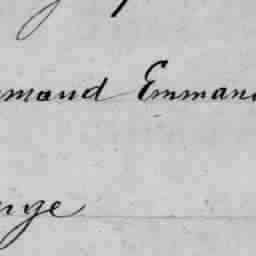 mand Emman
nge